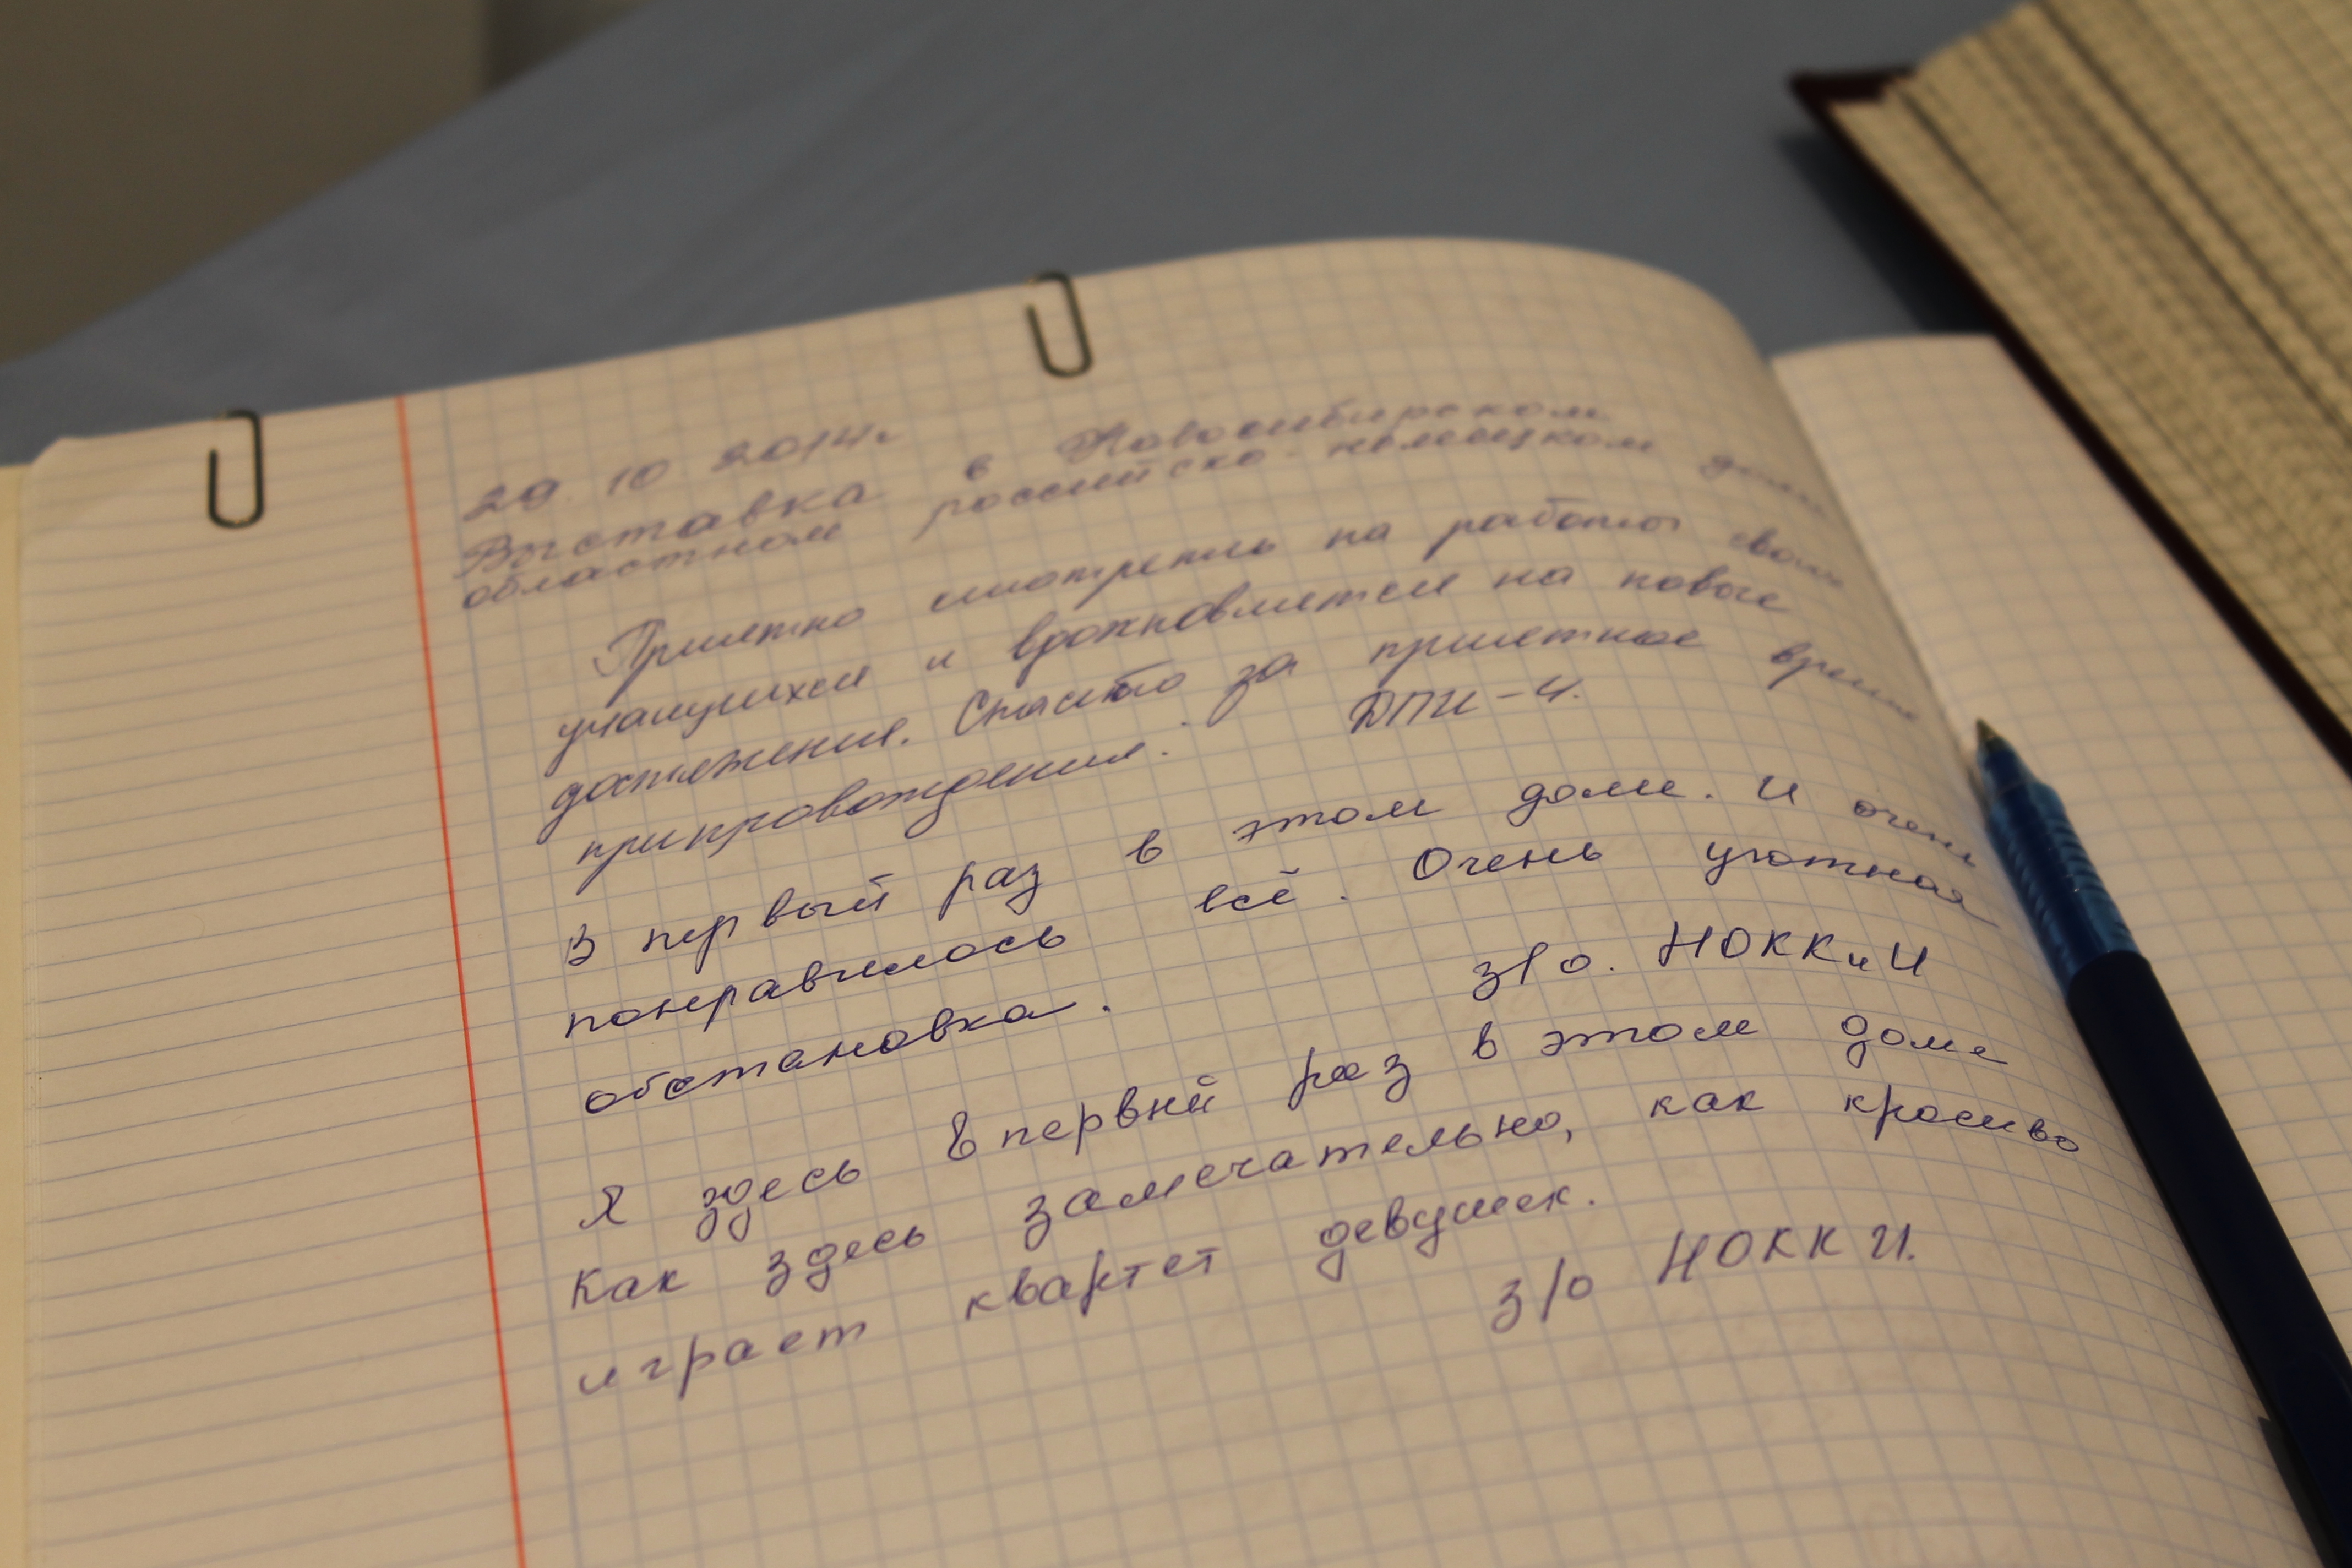 29. 10. 2014г
Выставка в Новосибирском
областном российско-немецком доме
Приятно смотреть на работы своих
учащихся и вдохновляется на новые
достяжения. Спасибо за приятное время
припровождения. ДПИ-4.
В первый раз в этом доме. И очень
понравилось всё. Очень уютная
обстановка.
з/о. НОККиИ
Я здесь впервый раз в этом доме
Как здесь замечательно, как красиво
играет квартет девушек.
з/о НОКК И.